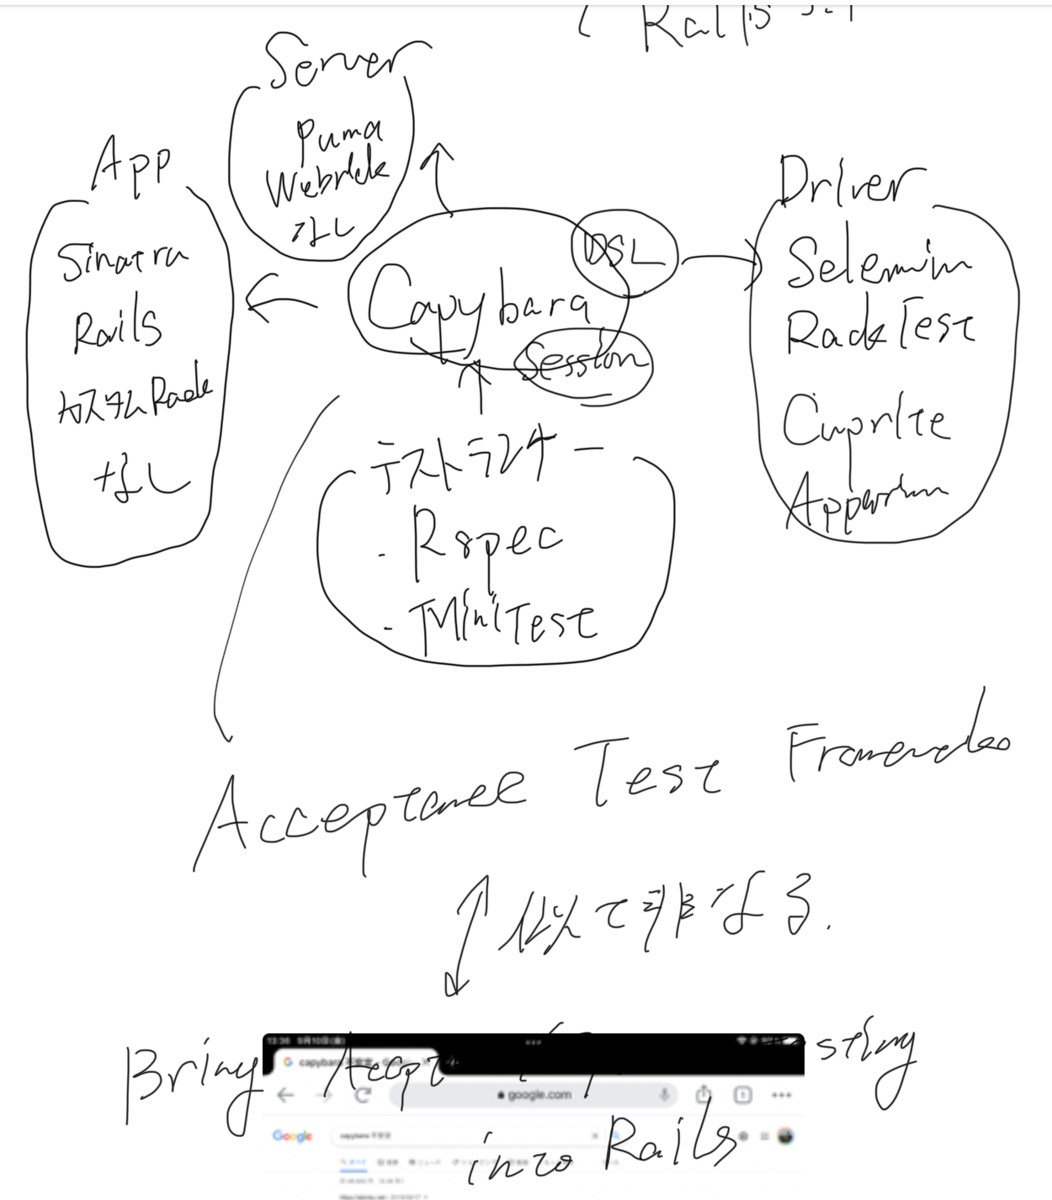 Rails
Server
Puma
Webrick
なし
App
Sinatra
Rails
カスタムRack
なし
Capybara
DSL
Session
Driver
Selenium
RackTest
Cuprite
テストランナー
- Rspec
- MiniTest
Acceptance Test
似て非なる.
Bring
into Rails
13:36 9月10日(金)
google.com
Google